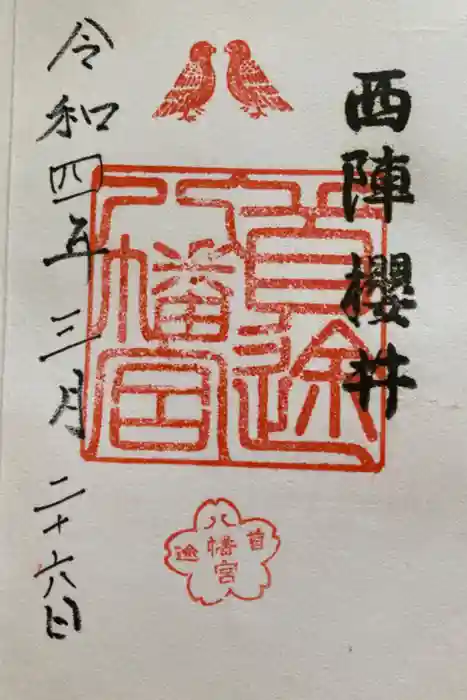 西陣 櫻井
首途
八幡宮
令和四年三月二十六日
首
八幡宮
途